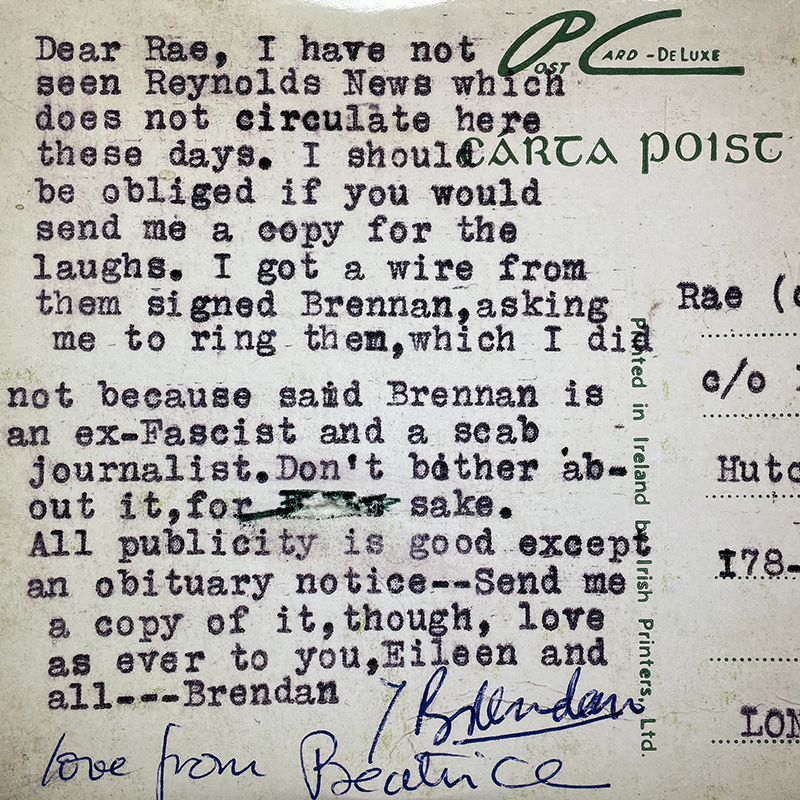 Dear Rae, I have not
seen Reynolds News which
does not circulate here
these days. I should
be obliged if you would
send me a copy for the
laughs. I got a wire from
them signed Brennan,asking
me to ring them,which I did
not because said Brennan is
an ex-Fascist and a scab
journalist.Don't bother ab-
out it,for sake.
All publicity is good except
an obituary notice--Send me
a copy of it,though, love
as ever to you,Eileen and
all---Brendan
Brendan
love from Beatrice
POST CARD -DE LUXE
CÁRTA POIST
Printed in Ireland by Irish Printers, Ltd.
Rae (
c/o
Hutc
178-
LON